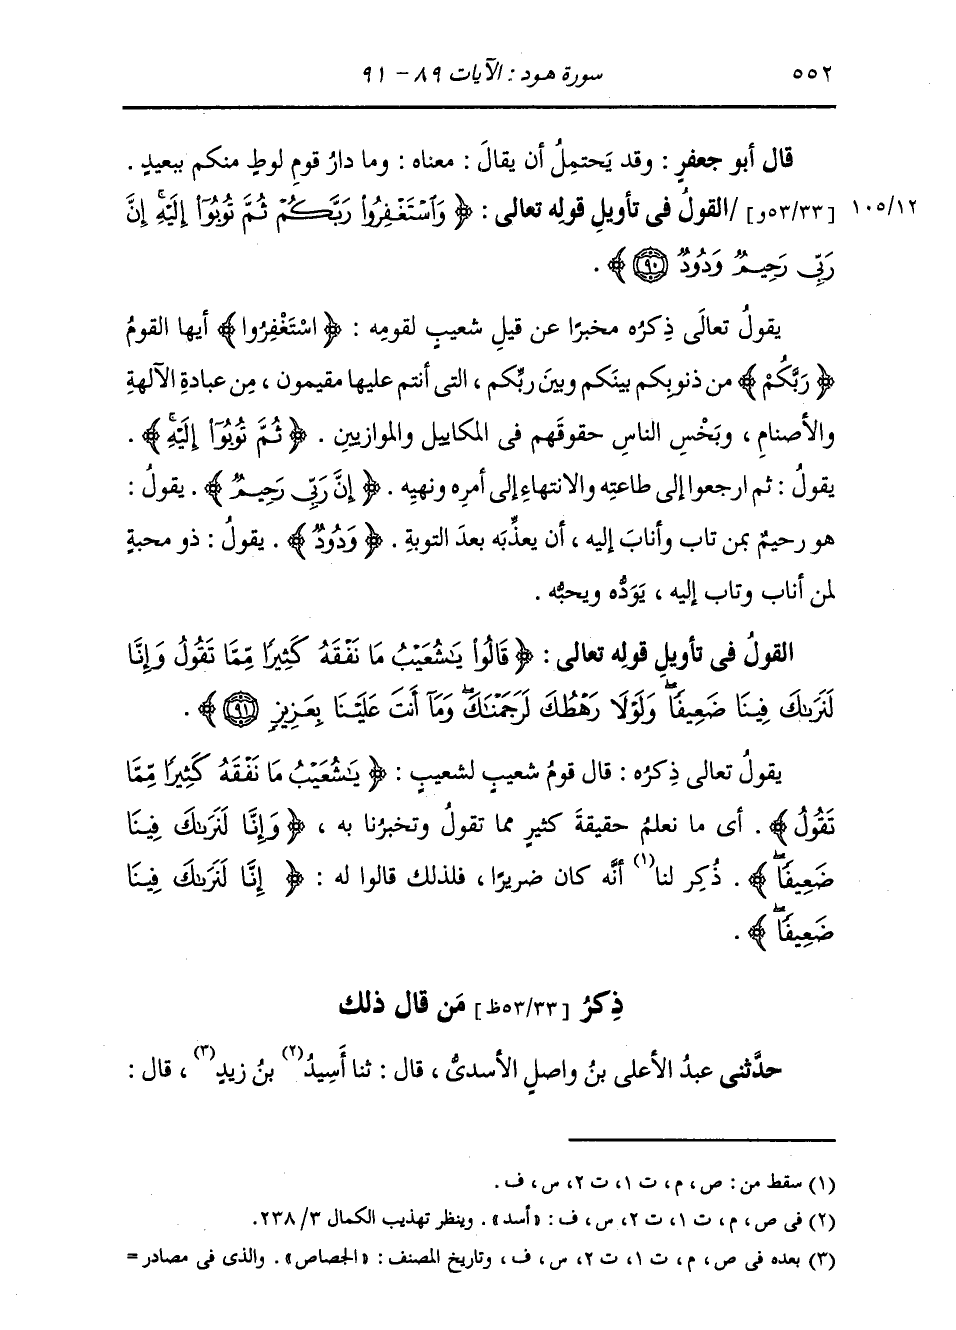 ٥٥٢ سورة هود : الآيات ٨٩ - ٩١
قال أبو جعفرٍ : وقد يَحتمِلُ أن يقالَ : معناه : وما دارُ قومِ لوطٍ منكم ببعيدٍ .
١٠٥/١٢ [٥٣/٣٣و] /القولُ فى تأويلِ قولِه تعالى : ﴿ وَٱسْتَغْفِرُوا۟ رَبَّكُمْ ثُمَّ تُوبُوٓا۟ إِلَيْهِ ۚ إِنَّ
رَبِّى رَحِيمٌ وَدُودٌ ٩٠ ﴾ .
يقولُ تعالَى ذِكرُه مخبرًا عن قيلِ شعيبٍ لقومِه : ﴿ اسْتَغْفِرُوا ﴾ أيها القومُ
﴿ رَبَّكُمْ ﴾ من ذنوبِكم بينَكم وبينَ ربِّكم ، التى أنتم عليها مقيمون ، مِن عبادةِ الآلهةِ
والأصنامِ ، وبَخْسِ الناسِ حقوقَهم فى المكاييلِ والموازيينِ . ﴿ ثُمَّ تُوبُوٓا۟ إِلَيْهِ ۚ ﴾ .
يقولُ : ثم ارجعوا إلى طاعتِه والانتهاءِ إلى أمرِه ونهيِه . ﴿ إِنَّ رَبِّى رَحِيمٌ ﴾ . يقولُ :
هو رحيمٌ بمن تاب وأنابَ إليه ، أن يعذِّبَه بعدَ التوبةِ . ﴿ وَدُودٌ ﴾ . يقولُ : ذو محبةٍ
لمن أناب وتاب إليه ، يَوَدُّه ويحبُّه .
القولُ فى تأويلِ قولِه تعالى : ﴿ قَالُوا۟ يَـٰشُعَيْبُ مَا نَفْقَهُ كَثِيرًا مِّمَّا تَقُولُ وَإِنَّا
لَنَرَىٰكَ فِينَا ضَعِيفًا ۖ وَلَوْلَا رَهْطُكَ لَرَجَمْنَـٰكَ ۖ وَمَآ أَنتَ عَلَيْنَا بِعَزِيزٍ ٩١ ﴾ .
يقولُ تعالى ذِكرُه : قال قومُ شعيبٍ لشعيبٍ : ﴿ يَـٰشُعَيْبُ مَا نَفْقَهُ كَثِيرًا مِّمَّا
تَقُولُ ﴾ . أى ما نعلمُ حقيقةَ كثيرٍ مما تقولُ وتخبرُنا به ، ﴿ وَإِنَّا لَنَرَىٰكَ فِينَا
ضَعِيفًا ۖ ﴾ . ذُكِر لنا(١) أنَّه كان ضريرًا ، فلذلك قالوا له : ﴿ إِنَّا لَنَرَىٰكَ فِينَا
ضَعِيفًا ۖ ﴾ .
ذِكرُ [٥٣/٣٣ظ] مَن قال ذلك
حدَّثنى عبدُ الأعلى بنُ واصلٍ الأسدىُّ ، قال : ثنا أَسِيدُ(٢) بنُ زيدٍ(٣) ، قال :
(١) سقط من : ص ، م ، ت ١، ت ٢، س ، ف .
(٢) فى ص ، م ، ت ١، ت ٢، س ، ف : «أسد» . وينظر تهذيب الكمال ٣/ ٢٣٨.
(٣) بعده فى ص ، م ، ت ١، ت ٢، س ، ف ، وتاريخ المصنف : «الجصاص» . والذى فى مصادر =